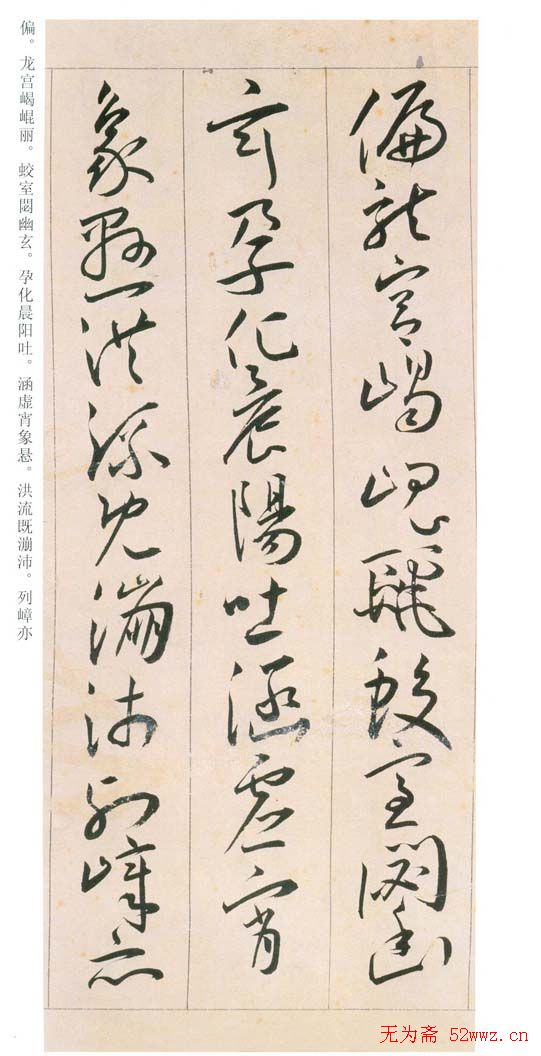 偏龍宮嵑崐麗蛟室閟幽
玄孕化晨陽吐涵虛宵
象懸洪流既漰沛列嶂亦
偏。龙宫嵑崐丽。蛟室閟幽玄。孕化晨阳吐。涵虚宵象悬。洪流既漰沛。列嶂亦
无为斋 52wwz.cn